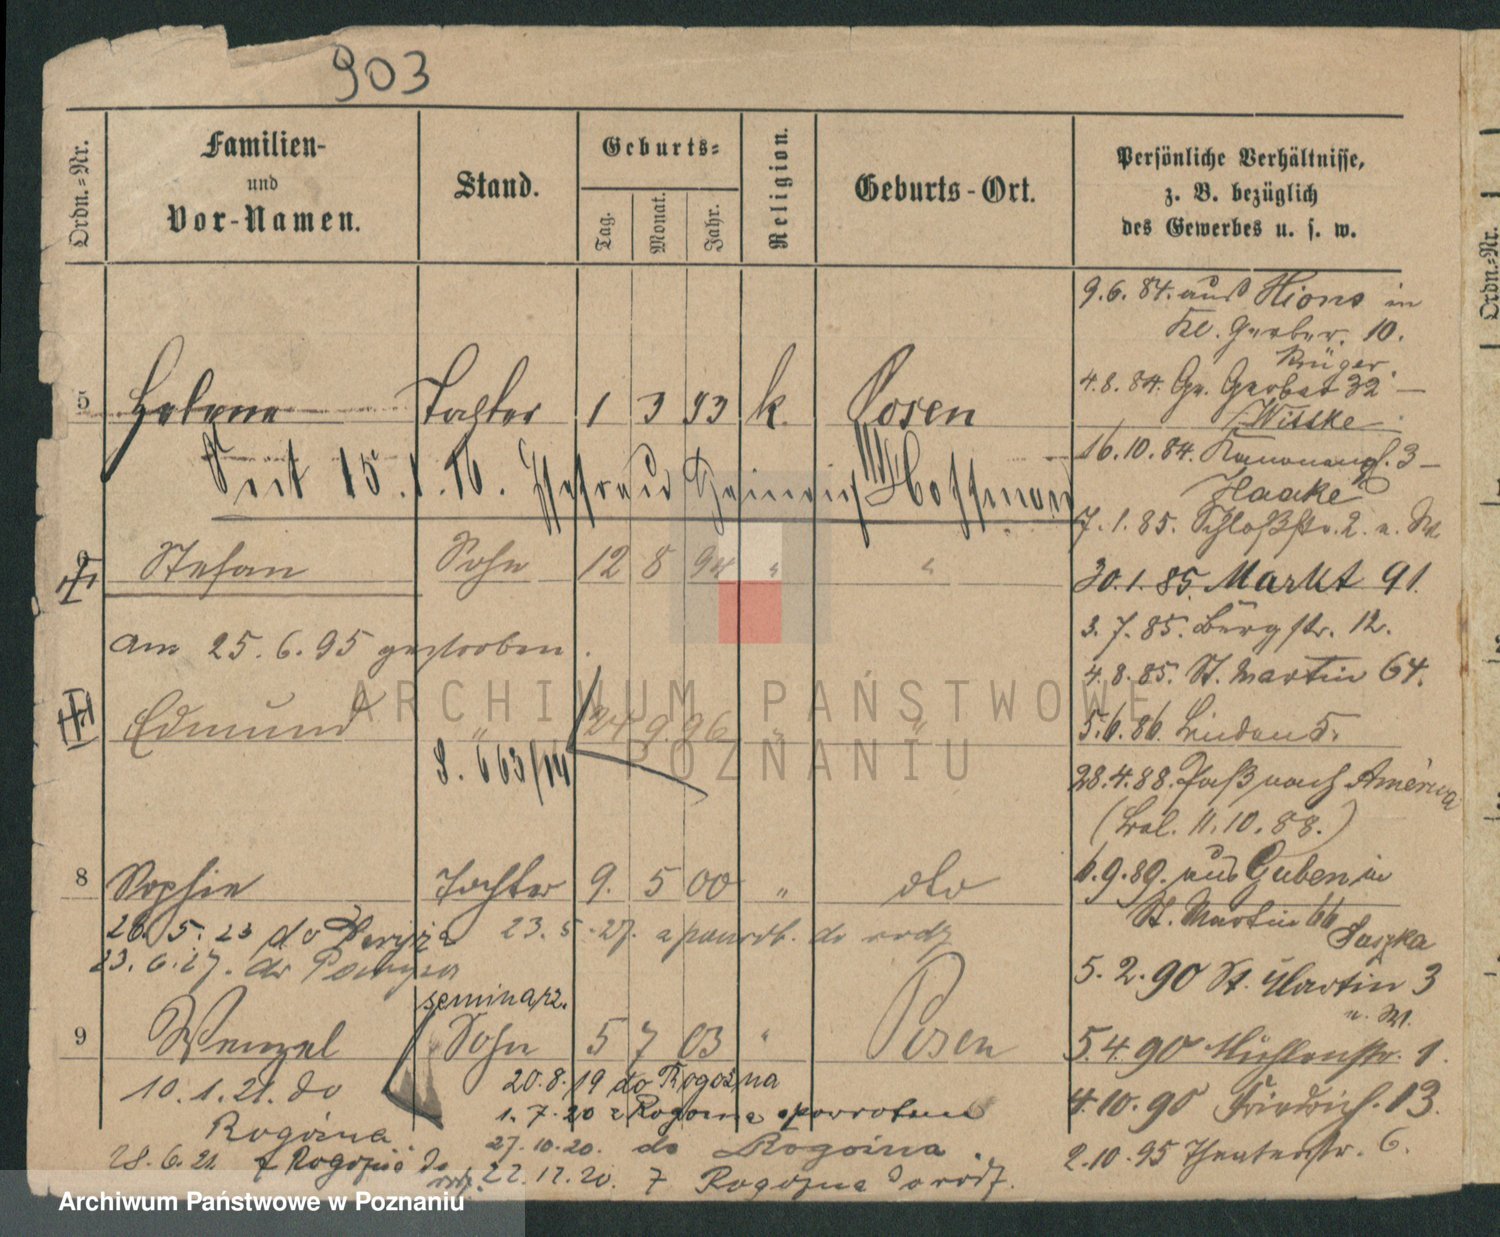 903
Ordn.-Nr.
Familien-
und
Vor-Namen.
Stand.
Geburts-
Tag. Monat. Jahr.
Religion.
Geburts-Ort.
Persönliche Verhältnisse,
z. B. bezüglich
des Gewerbes u. s. w.
5 Helene Tochter 1 3 93 k. Posen
Seit 15.1.16. Ehefrau Heinrich Hoffmann
6 Stefan Sohn 12 8 94 " "
am 25.6.95 gestorben.
Edmund " 24 9 96 " "
S. 663/14
8 Sophie Tochter 9. 5 00 " dto
26.5.23 do 23.5.27. z powrot. do rodz
23.6.27. do
seminarz.
9 Wenzel Sohn 5 7 03 " Posen
10.1.21. do
Rogoźna
20.8.19 do Rogoźna
1.7.20 z Rogoźna z powrotem
27.10.20. do Rogoźna
28.6.21 z do rodz.
22.12.20. z Rogoźna do rodz.
9.6.84. aus Xions in
Kl. Gerber. 10.
Krüger.
4.8.84. Gr. Gerber 32 —
Wittke
16.10.84. Kanonenpl. 3 —
Haake
7.1.85. Schloßstr. 2. u. W.
30.1.85. Markt 91.
3.7.85. Bergstr. 12.
4.8.85. St. Martin 64.
5.6.86. Linden 5.
28.4.88. Paß nach America
11.10.88.)
6.9.89. aus Guben in
St. Martin 66
Saszka
5.2.90 St. Martin 3
u. W.
5.4.90 Mühlenstr. 1.
4.10.90 Friedrich. 13.
2.10.95 Theaterstr. 6.
Ordn.-Nr.
ARCHIWUM PAŃSTWOWE
W POZNANIU
Archiwum Państwowe w Poznaniu